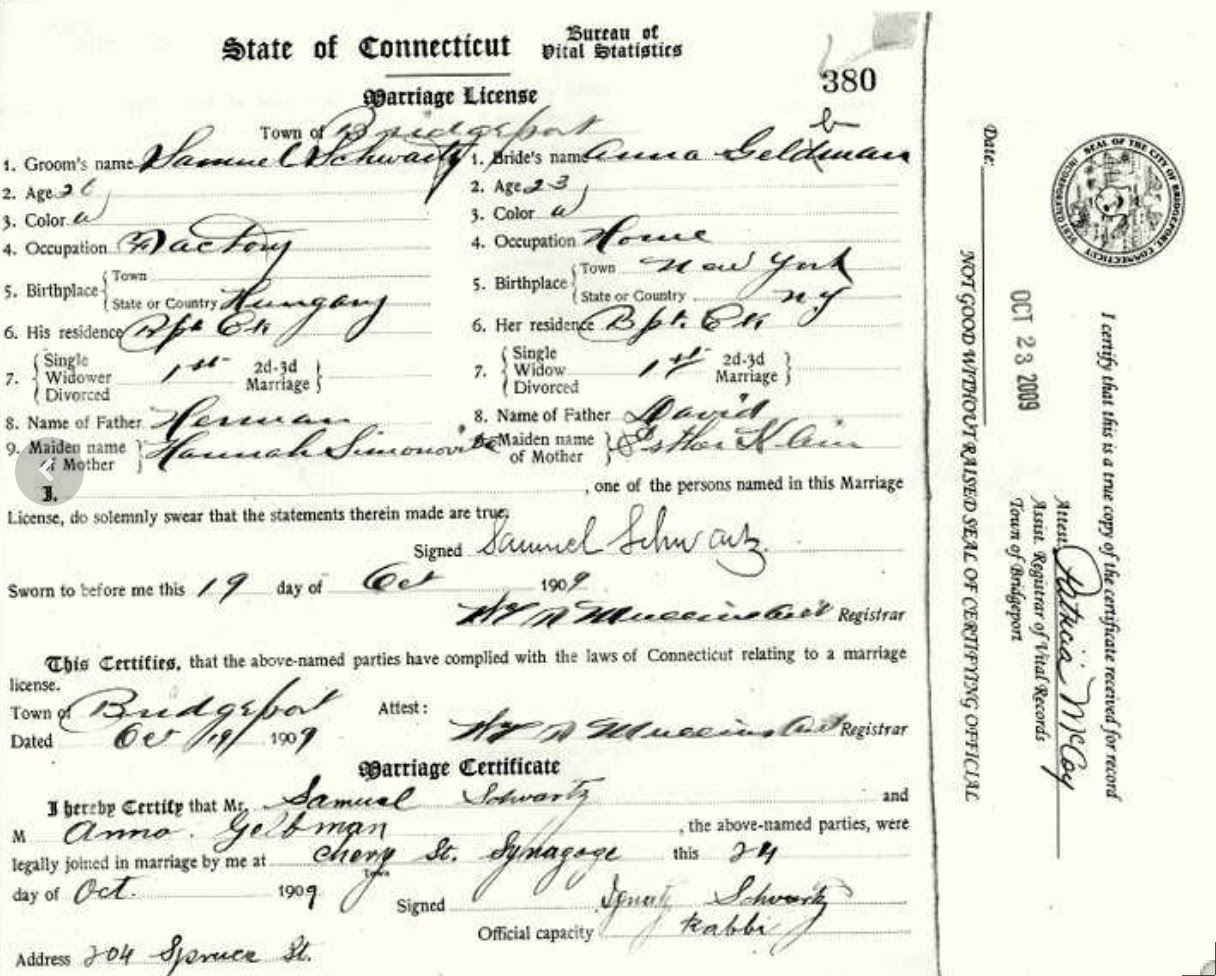 State of Connecticut Bureau of Vital Statistics
380
Marriage License
b
Town of Bridgeport
1. Groom's name Samuel Schwartz
2. Age 26
3. Color W
4. Occupation Factory
5. Birthplace { Town
State or Country Hungary
6. His residence Bpt
7. { Single Widower Divorced 1st 2d-3d Marriage }
8. Name of Father Herman
9. Maiden name of Mother } Hannah Simonovitz
1. Bride's name Anna Geldman
2. Age 23
3. Color W
4. Occupation Home
5. Birthplace { Town New York
State or Country NY
6. Her residence Bpt.
7. { Single Widow Divorced 1st 2d-3d Marriage }
8. Name of Father David
9. Maiden name of Mother } Esther Klein
I. , one of the persons named in this Marriage
License, do solemnly swear that the statements therein made are true.
Signed Samuel Schwartz
Sworn to before me this 19 day of Oct 1909
Mullins Asst Registrar
This Certifies, that the above-named parties have complied with the laws of Connecticut relating to a marriage
license.
Town of Bridgeport Attest:
Dated Oct 19 1909 Mullins Asst Registrar
Marriage Certificate
I hereby Certify that Mr. Samuel Schwartz and
M Anna Gelbman , the above-named parties, were
legally joined in marriage by me at Cherry St. Synagoge this 24
Town
day of Oct. 1909 Signed Ignatz Schwartz
Official capacity Rabbi
Address 204 Spruce St.
SEAL OF THE CITY OF BRIDGEPORT, CONNECTICUT
I certify that this is a true copy of the certificate received for record
Attest: Patricia McCoy
Assist. Registrar of Vital Records
Town of Bridgeport
OCT 23 2009
Date:
NOT GOOD WITHOUT RAISED SEAL OF CERTIFYING OFFICIAL